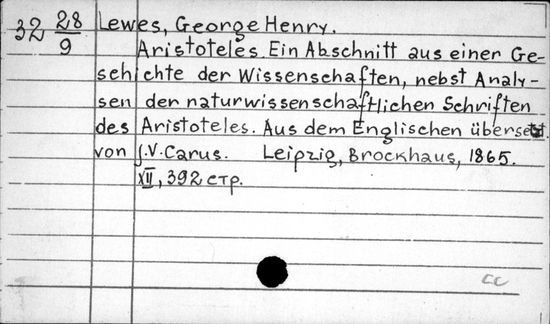 32 28/9 Lewes, George Henry.
Aristoteles. Ein Abschnitt aus einer Ge-
schichte der Wissenschaften, nebst Analy-
sen der naturwissenschaftlichen Schriften
des Aristoteles. Aus dem Englischen übersetzt.
von J.V. Carus. Leipzig, Brockhaus, 1865.
XII, 392 стр.
CC